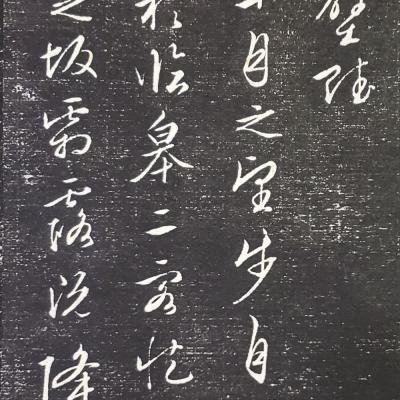 壁賦
十月之望步自
於臨皋二客從
之坂霜露既降